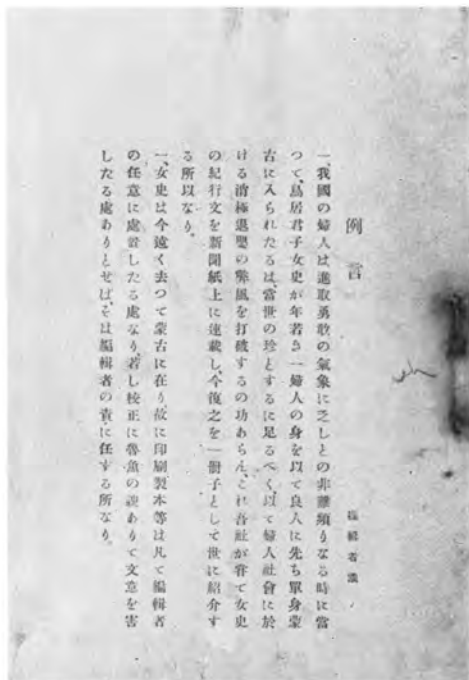 例言
編輯者識
一、我國の婦人は進取勇敢の氣象に乏しとの非難頻りなる時に當
つて、鳥居君子女史が年若き一婦人の身を以て良人に先ち單身蒙
古に入られたるは、當世の珍とするに足るべく、以て婦人社會に於
ける消極退嬰の弊風を打破するの功あらん、これ吾社が嘗て女史
の紀行文を新聞紙上に連載し、今復之を一冊子として世に紹介す
る所以なり。
一、女史は今遠く去つて蒙古に在り故に印刷製本等は凡て編輯者
の任意に處置したる處なり、若し校正に魯魚の誤ありて文意を害
したる處ありとせば、そは編輯者の責に任する所なり。